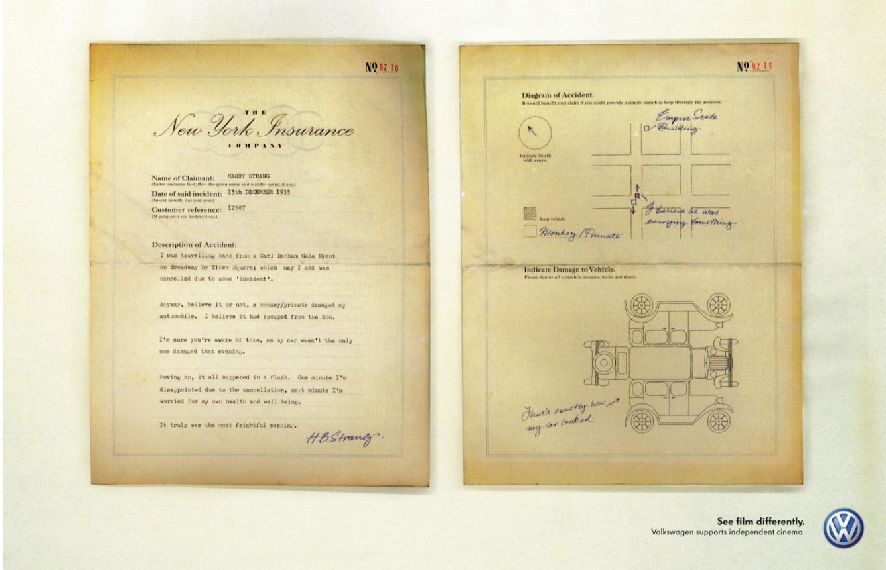 Nº 92 16
THE
New York Insurance
COMPANY
Name of Claimant: HARRY STRANG
Date of said incident: 15th DECEMBER 1933
Customer reference: 12987
Description of Accident:
I was travelling back from a Carl Denham Gala Event
on Broadway by Times Square; which may I add was
cancelled due to some 'incident'.
Anyway, believe it or not, a damaged my
automobile. I believe it had escaped from the Zoo.
I'm sure you're aware of this, as my car wasn't the only
one damaged that evening.
Moving on, it all happened in a flash. One minute I'm
disappointed due to the cancellation, next minute I'm
worried for my own health and well being.
It truly was the most frightful evening.
H B Strang.
Nº 92 16
Diagram of Accident.
It would benefit your claim if you could provide a simple sketch to help illustrate the accident.
Empire State
Building
Indicate North
with arrow
I believe he was
carrying something.
Your vehicle
Monkey / Primate
Indicate Damage to Vehicle.
That's exactly how
my car looked.
See film differently.
Volkswagen supports independent cinema
VW